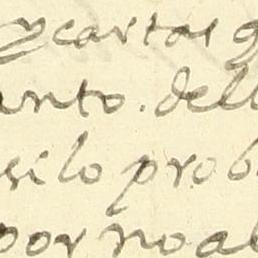 y cartas
anto. dell
si lo prob
por no al